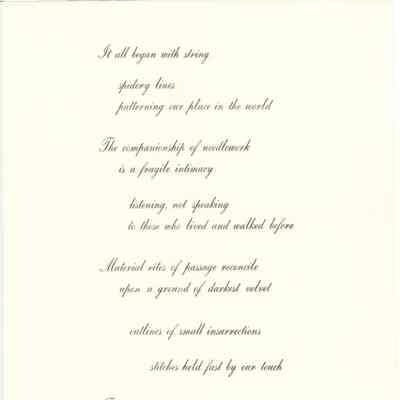 It all began with string
spidery lines
patterning our place in the world
The companionship of needlework
is a fragile intimacy
listening, not speaking
to those who lived and walked before
Material rites of passage reconcile
upon a ground of darkest velvet
outlines of small insurrections
stitches held fast by our touch